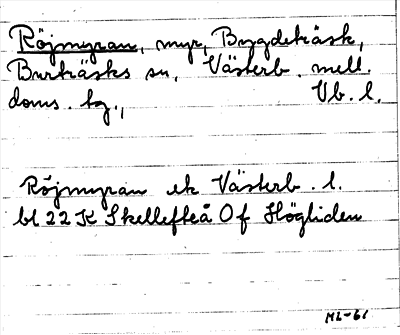 Röjmyran, myr, Bygdeträsk,
Burträsks sn, Västerb. mell.
doms. tg., Vb. l.
Röjmyran ek Västerb. l.
bl 22 K Skellefteå Of Högliden
ML-61